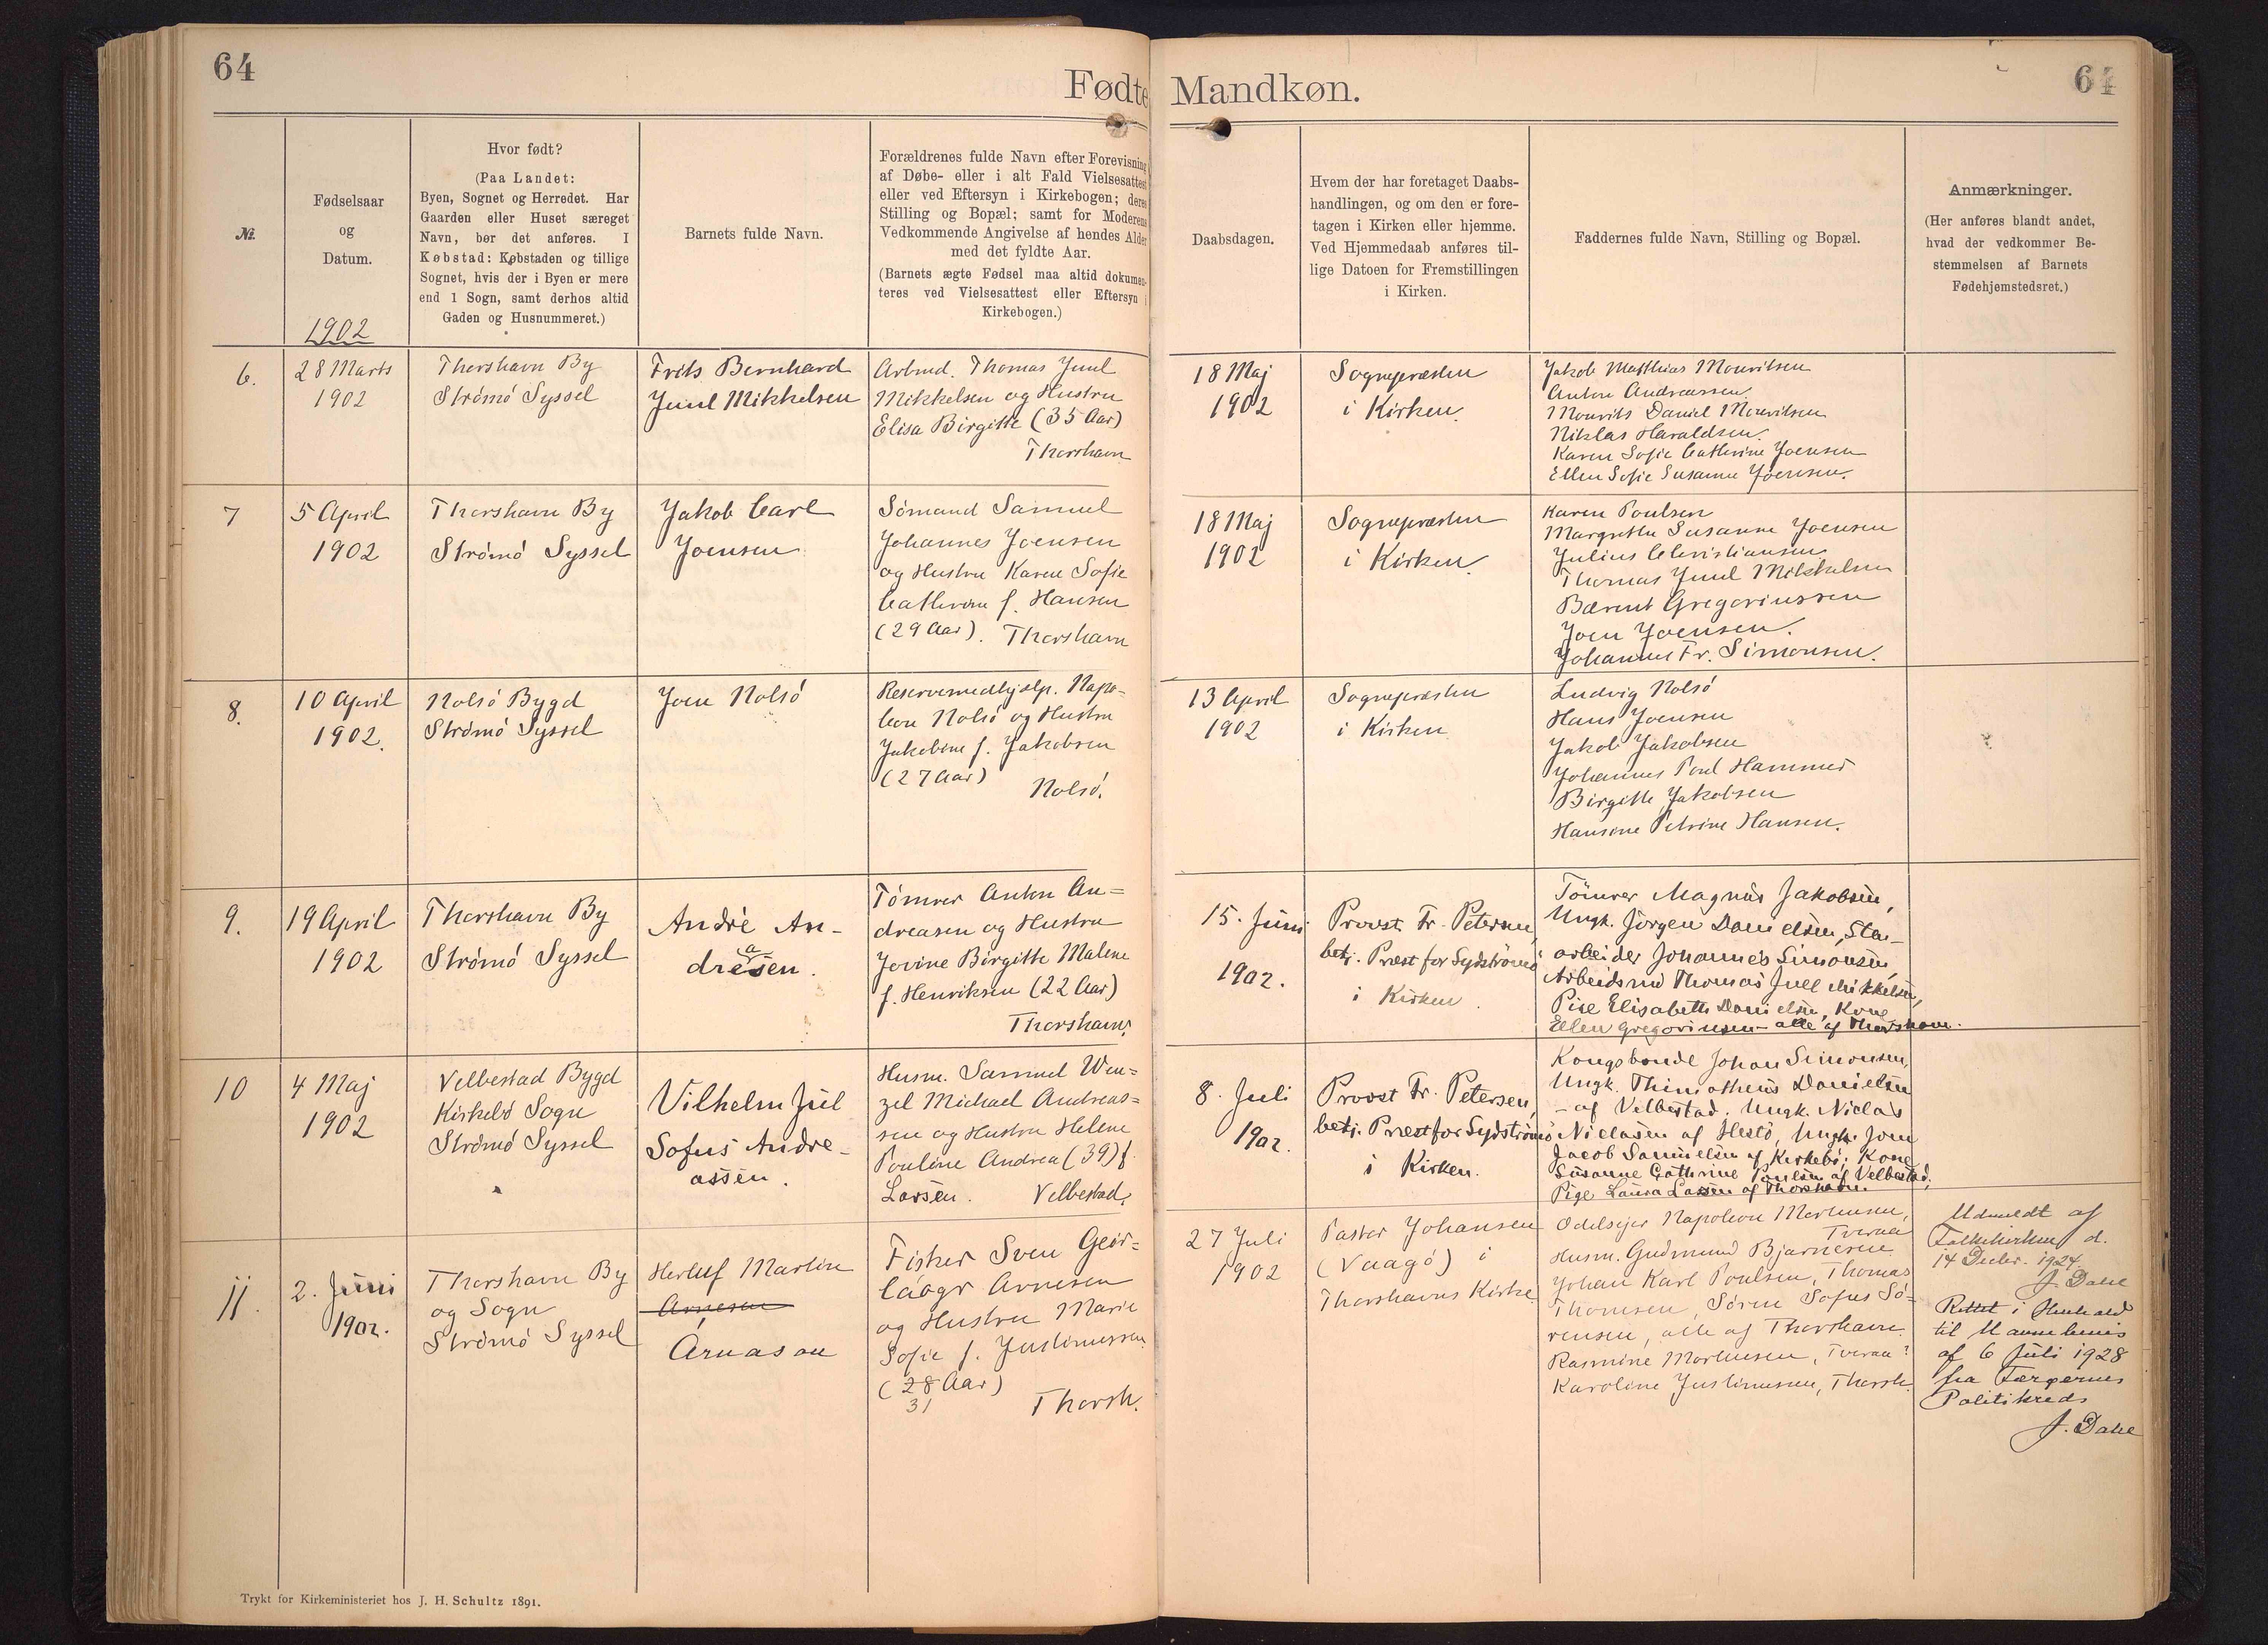 64
Fødte
Mandkøn.
64
№.
Fødselsaar
og
Datum.
1902
Hvor født?
(Paa Landet:
Byen, Sognet og Herredet. Har
Gaarden eller Huset særeget
Navn, bør det anføres. I
Købstad: Købstaden og tillige
Sognet, hvis der i Byen er mere
end 1 Sogn, samt derhos altid
Gaden og Husnummeret.)
Barnets fulde Navn.
Forældrenes fulde Navn efter Forevisning
af Døbe- eller i alt Fald Vielsesattest
eller ved Eftersyn i Kirkebogen; deres
Stilling og Bopæl; samt for Moderens
Vedkommende Angivelse af hendes Alder
med det fyldte Aar.
(Barnets ægte Fødsel maa altid dokumen-
teres ved Vielsesattest eller Eftersyn i
Kirkebogen.)
Daabsdagen.
Hvem der har foretaget Daabs-
handlingen, og om den er fore-
tagen i Kirken eller hjemme.
Ved Hjemmedaab anføres til-
lige Datoen for Fremstillingen
i Kirken.
Faddernes fulde Navn, Stilling og Bopæl.
Anmærkninger.
(Her anføres blandt andet,
hvad der vedkommer Be-
stemmelsen af Barnets
Fødehjemstedsret.)
6.
28 Marts
1902
Thorshavn By
Strömö Syssel
Frits Bernhard
Juul Mikkelsen
Arbmd. Thomas Juul
Mikkelsen og Hustru
Elisa Birgitte (35 Aar)
Thorshavn
18 Maj
1902
Sognepræsten
i Kirken.
Jakob Matthias Mouritsen
Anton Andreassen.
Mourits Daniel Mouritsen
Niklas Haraldsen.
Karen Sofie Cathrine Joensen
Ellen Sofie Susanne Joensen.
7
5 April
1902
Thorshavn By
Strömö Syssel
Jakob Carl
Joensen
Sömand Samuel
Johannes Joensen
og Hustru Karen Sofie
Cathrine f. Hansen
(29 Aar). Thorshavn
18 Maj
1902
Sognepræsten
i Kirken.
Karen Poulsen
Margrethe Susanne Joensen
Julius Christiansen
Thomas Juul Mikkelsen
Bærent Gregoriussen
Joen Joensen.
Johannes Fr. Simonsen.
8.
10 April
1902.
Nolsö Bygd
Strömö Syssel
Joen Nolsö
Reservemedhjælp. Napo-
leon Nolsö og Hustru
Jakobine f. Jakobsen
(27 Aar)
Nolsö.
13 April
1902
Sognepræsten
i Kirken
Ludvig Nolsö
Hans Joensen
Jakob Jakobsen
Johannes Poul Hammer
Birgitte Jakobsen
Hansine Petrine Hansen.
9.
19 April
1902
Thorshavn By
Strömö Syssel
André An-
a
dresen.
Tömrer Anton An-
dreasen og Hustru
Jovine Birgitte Malene
f. Henriksen (22 Aar)
Thorshavn.
15. Juni
1902.
Provst Fr. Petersen,
betj. Præst for Sydströmö
i Kirken.
Tömrer Magnus Jakobsen,
Ungk. Jörgen Danielsen, Sten-
arbeider Johannes Simonsen,
Arbeidsmd Thomas Juel Mikkelsen,
Pige Elisabeth Danielsen, Kone
Ellen Gregoriusen - alle af Thorshavn.
10
4 Maj
1902
Velbestad Bygd
Kirkebö Sogn
Strömö Syssel
Vilhelm Juel
Sofus Andre-
assen.
Husm. Samuel Wen-
zel Michael Andreas-
sen og Hustru Helene
Pouline Andrea (39) f.
Larsen. Velbestad.
8. Juli
1902.
Provst Fr. Petersen,
betj. Præst for Sydströmö
i Kirken.
Kongsbonde Johan Simonsen,
Ungk. Thimotheus Danielsen
- af Velbestad. Ungk. Niclas
Niclasen af Hestö, Ungk. Joen
Jacob Samuelsen af Kirkebö; Kone
Susanne Cathrine Poulsen af Velbestad,
Pige Laura Larsen af Thorshavn
11.
2. Juni
1902.
Thorshavn By
og Sogn
Strömö Syssel
Herluf Martin
Arnesen
Arnason
Fisker Sven Geir-
laagr Arnesen
og Hustru Marie
Sofie f. Justinussen
(28 Aar)
31
Thorsh.
27 Juli
1902
Pastor Johansen
(Vaagö) i
Thorshavns Kirke
Odelsejer Napoleon Mortensen,
Tveraa
Husm. Gudmund Bjarnesen
Johan Karl Poulsen, Thomas
Thomsen, Sören Sofus Sö-
rensen, alle af Thorshavn.
Rasmine Mortensen, Tveraa
Karoline Justinusen, Thorsh.
Udmeldt af
Folkekirken d.
14 Decbr. 1924.
J. Dahl
Rettet i Henhold
til Navnebevis
af 6 Juli 1928
fra Færøernes
Politikreds
J. Dahl
Trykt for Kirkeministeriet hos J. H. Schultz 1891.